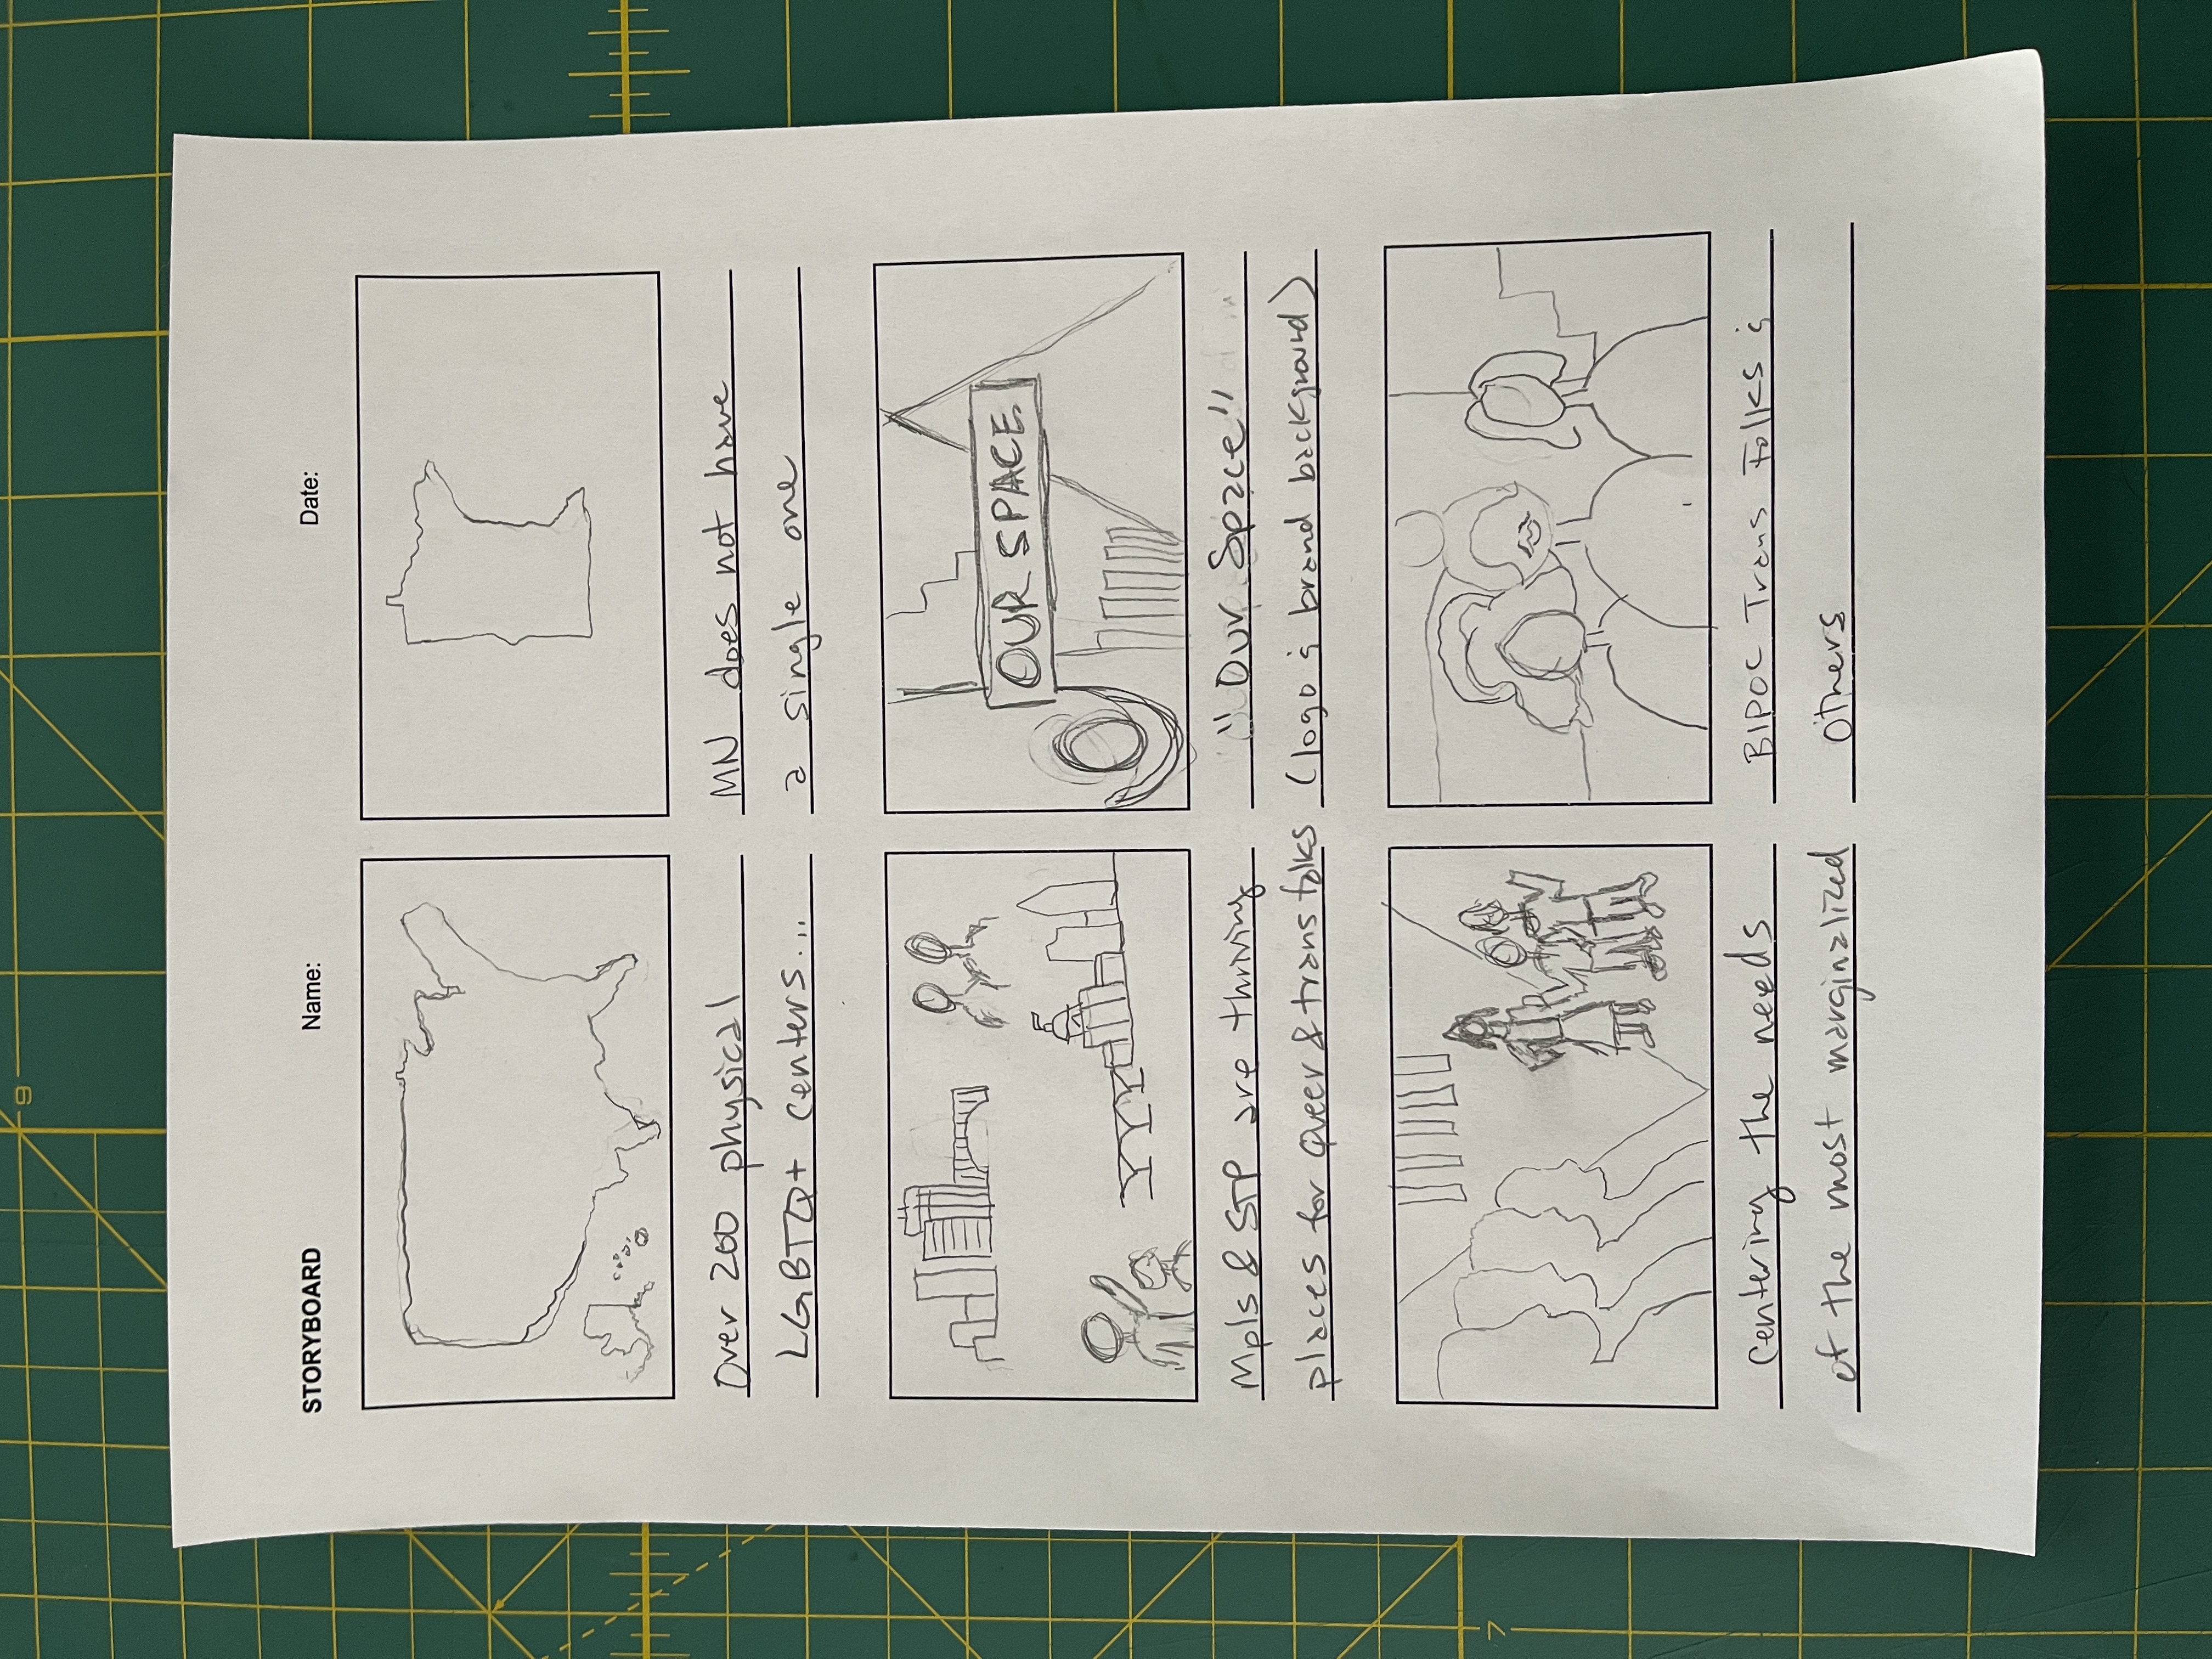 9
STORYBOARD Name: Date:
Over 200 physical
LGBTQ+ centers...
MN does not have
a single one
Mpls & STP are thriving
places for Queer & trans folks
OUR SPACE
"Our Space"
(logo & brand background)
7
centering the needs
of the most marginalized
BIPOC Trans Folks &
others